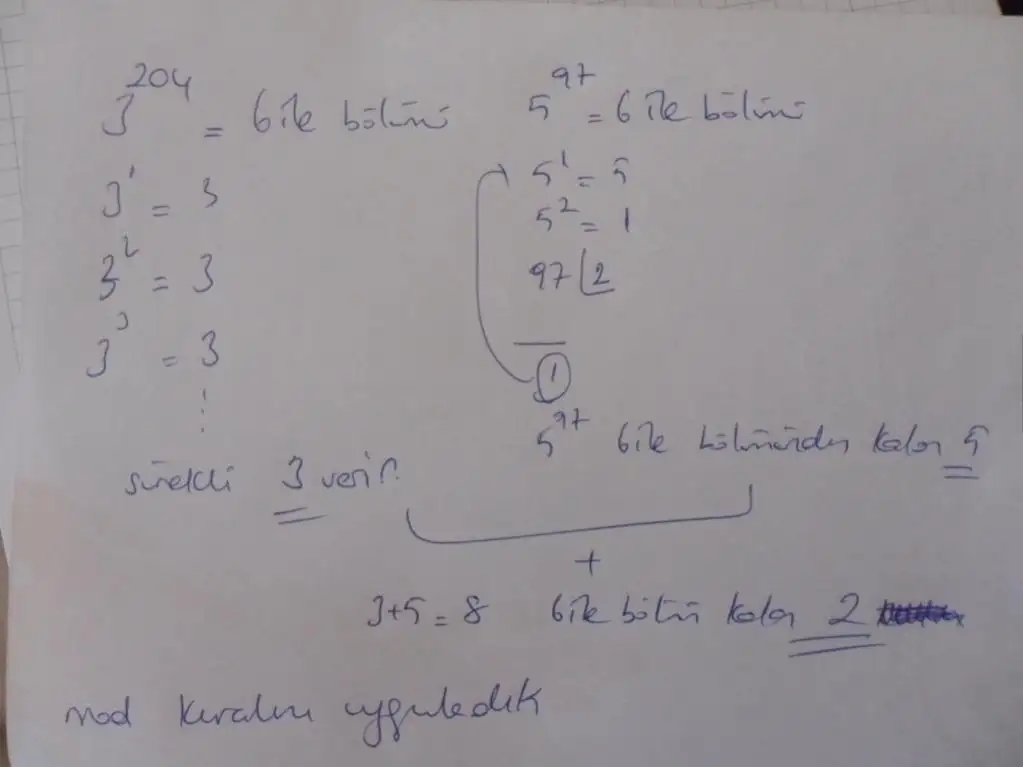 3^204 = 6 ile bölünü
3^1 = 3
3^2 = 3
3^3 = 3
⋮
sürekli 3 verir.
5^97 = 6 ile bölünü
5^1 = 5
5^2 = 1
97 | 2
1
5^97 6 ile bölümünden kalan 5
+
3+5 = 8 6 ile bölün kalan 2
mod kuralını uyguladık